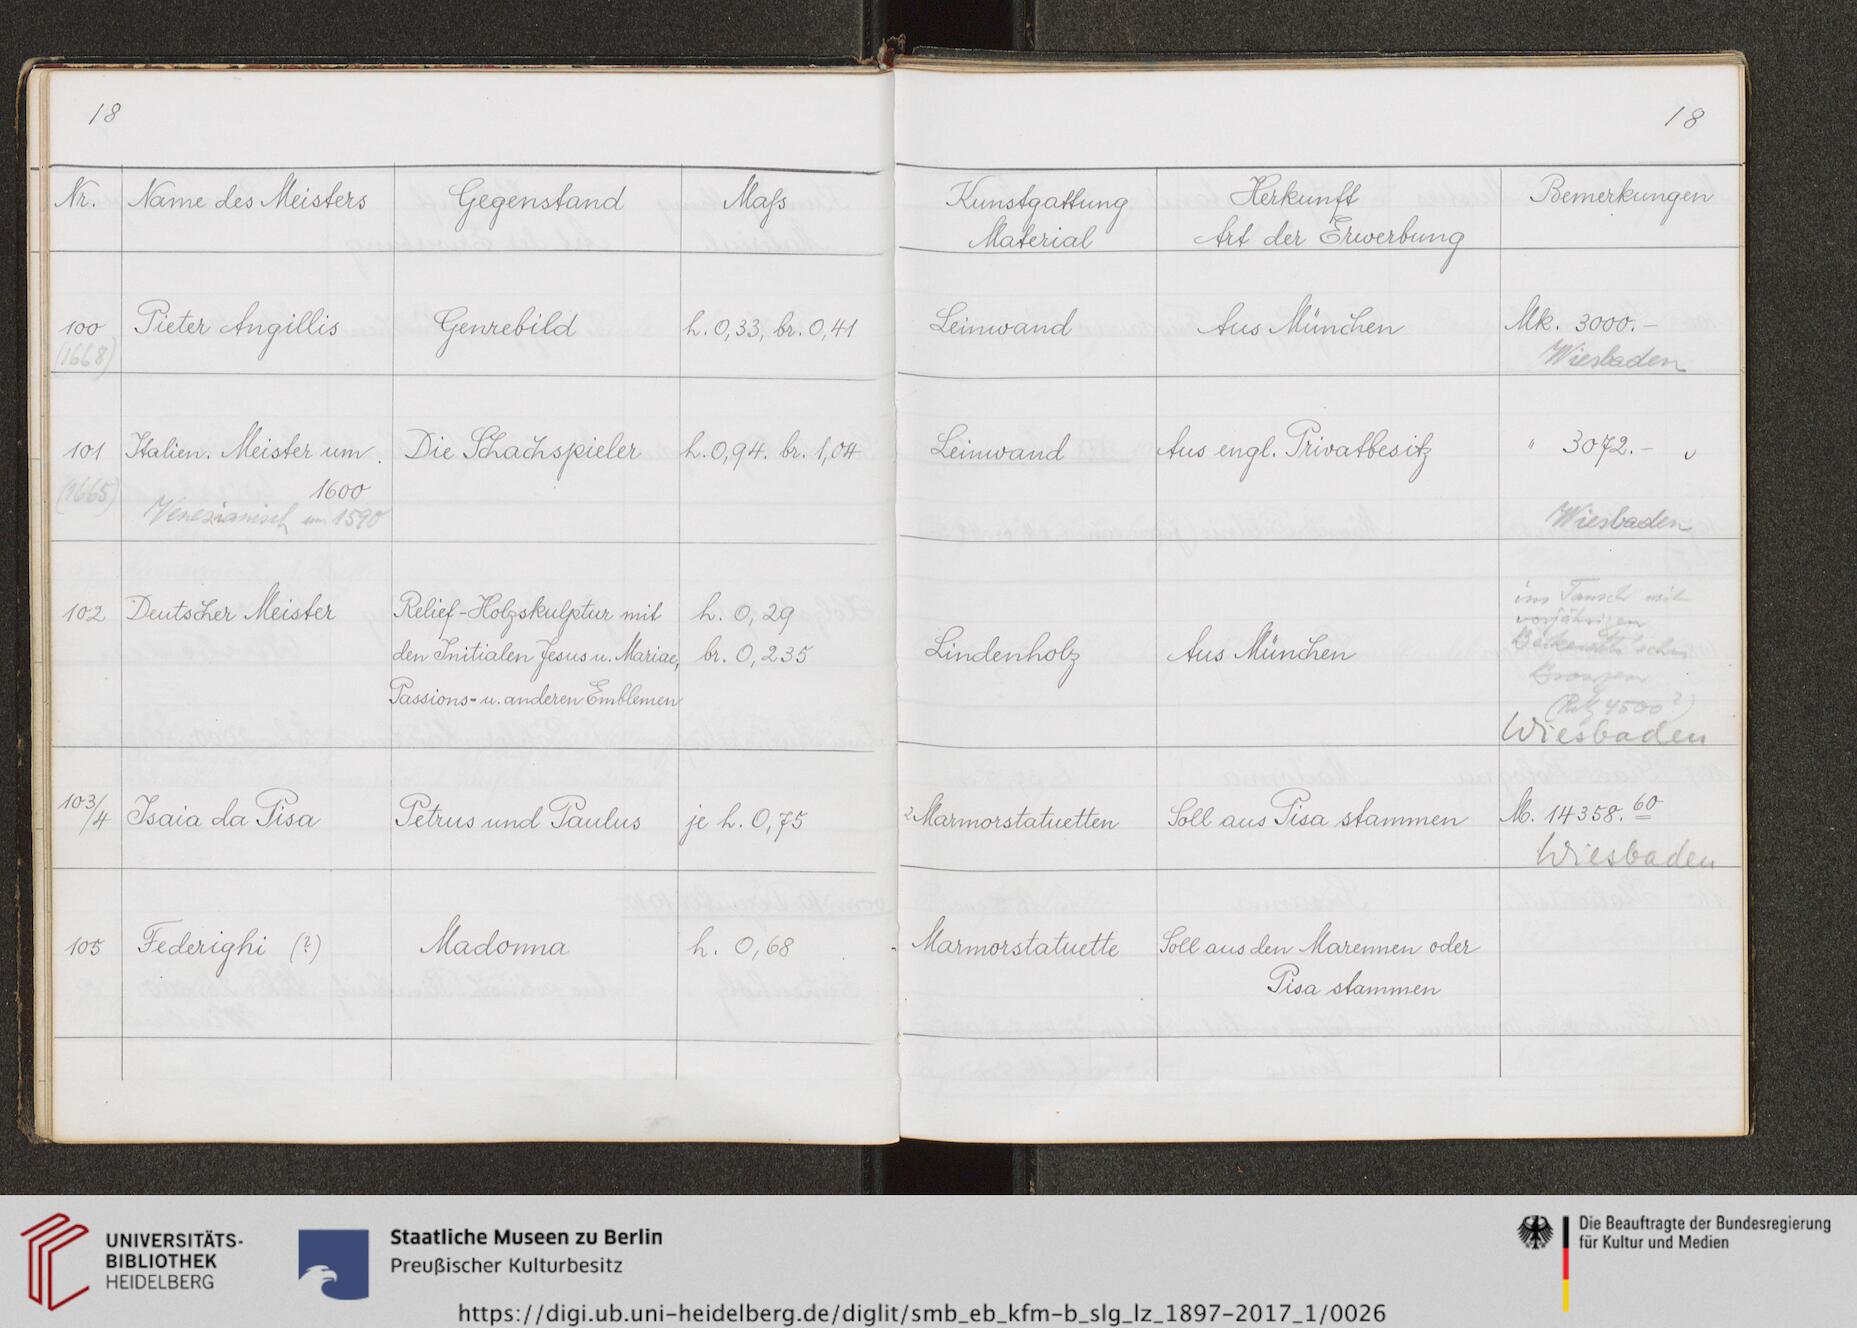 18
18
Nr. Name des Meisters Gegenstand Mass Kunstgattung Material Herkunft Art der Erwerbung Bemerkungen
100 Pieter Angillis Genrebild h. 0,33, br. 0,41 Leinwand Aus München Mk. 3000.-
(1668) Wiesbaden
101 Italien. Meister um Die Schachspieler h. 0,94. br. 1,04 Leinwand Aus engl. Privatbesitz " 3072.-
(1665) 1600
Venezianisch um 1590 Wiesbaden
102 Deutscher Meister Relief-Holzskulptur mit h. 0,29
den Initialen Jesus u. Mariae, br. 0,235 Lindenholz Aus München
Passions- u. anderen Emblemen
im Tausch mit
vorjährigen
Bronzen
4500?)
Wiesbaden
103/4 Isaia da Pisa Petrus und Paulus je h. 0,75 2 Marmorstatuetten Soll aus Pisa stammen M. 14358.60
Wiesbaden
105 Federighi (?) Madonna h. 0,68 Marmorstatuette Soll aus den Maremmen oder
Pisa stammen
UNIVERSITÄTS-
BIBLIOTHEK
HEIDELBERG
Staatliche Museen zu Berlin
Preußischer Kulturbesitz
Die Beauftragte der Bundesregierung
für Kultur und Medien
https://digi.ub.uni-heidelberg.de/diglit/smb_eb_kfm-b_slg_lz_1897-2017_1/0026